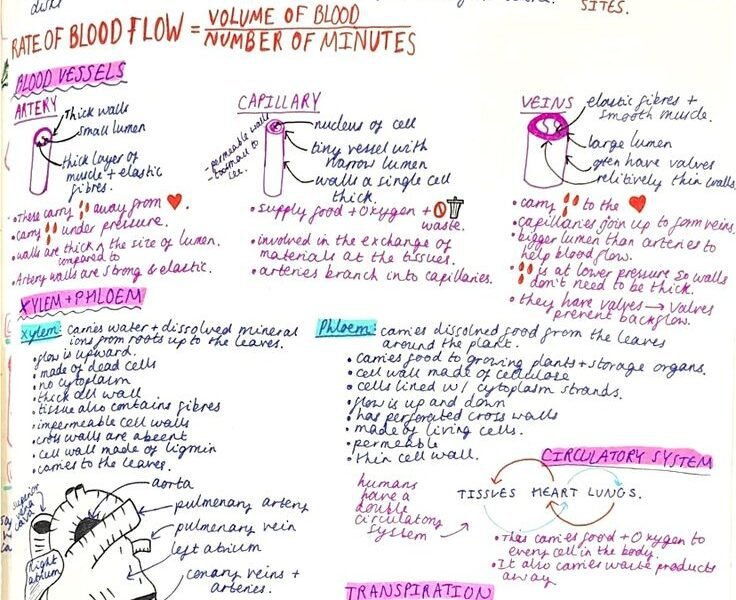 SITES.
RATE OF BLOOD FLOW = VOLUME OF BLOOD
NUMBER OF MINUTES
BLOOD VESSELS
ARTERY
Thick walls
small lumen
thick layer of
muscle + elastic
fibres.
• These carry away from
• carry under pressure.
• walls are thick
compared to
the size of lumen.
• Artery walls are strong & elastic.
CAPILLARY
- permeable walls
- too small to
see.
nucleus of cell
tiny vessel with
narrow lumen
walls a single cell
thick.
• supply food + oxygen +
waste.
• involved in the exchange of
materials at the tissues.
• arteries branch into capillaries.
VEINS
elastic fibres +
smooth muscle.
large lumen
often have valves
relitively thin walls.
• carry to the
• capillaries join up to form veins.
• bigger lumen than arteries to
help blood flow.
• is at lower pressure so walls
don't need to be thick.
• they have valves → valves
prevent backflow.
XYLEM + PHLOEM
Xylem: carries water + dissolved mineral
ions from roots up to the leaves.
• flow is upward.
• made of dead cells
• no cytoplasm
• thick cell wall
• tissue also contains fibres
• impermeable cell walls
• cross walls are absent
• cell wall made of ligmin
• carries to the leaves.
Phloem: carries dissolned food from the leaves
around the plant.
• carries food to growing plants + storage organs.
• cell wall made of cellulose
• cells lined w/ cytoplasm strands.
• flow is up and down
• has perforated cross walls
• made of living cells.
• permeable
• thin cell wall.
superior
vena
cava
Right
atrium
aorta
pulmonary artery
pulmonary vein
left atrium
conary veins +
arteries.
CIRCULATORY SYSTEM
humans
have a
double
circulatory
system
TISSUES HEART LUNGS.
• This carries food + oxygen to
every cell in the body.
• It also carries waste products
away
TRANSPIRATION